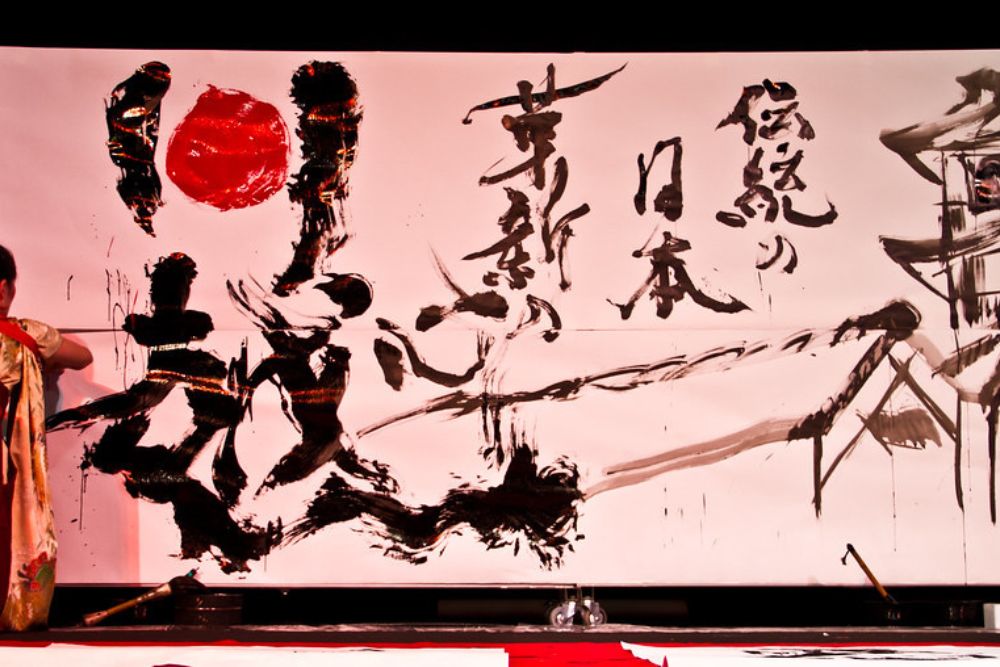 伝統の
日本
革新の
心